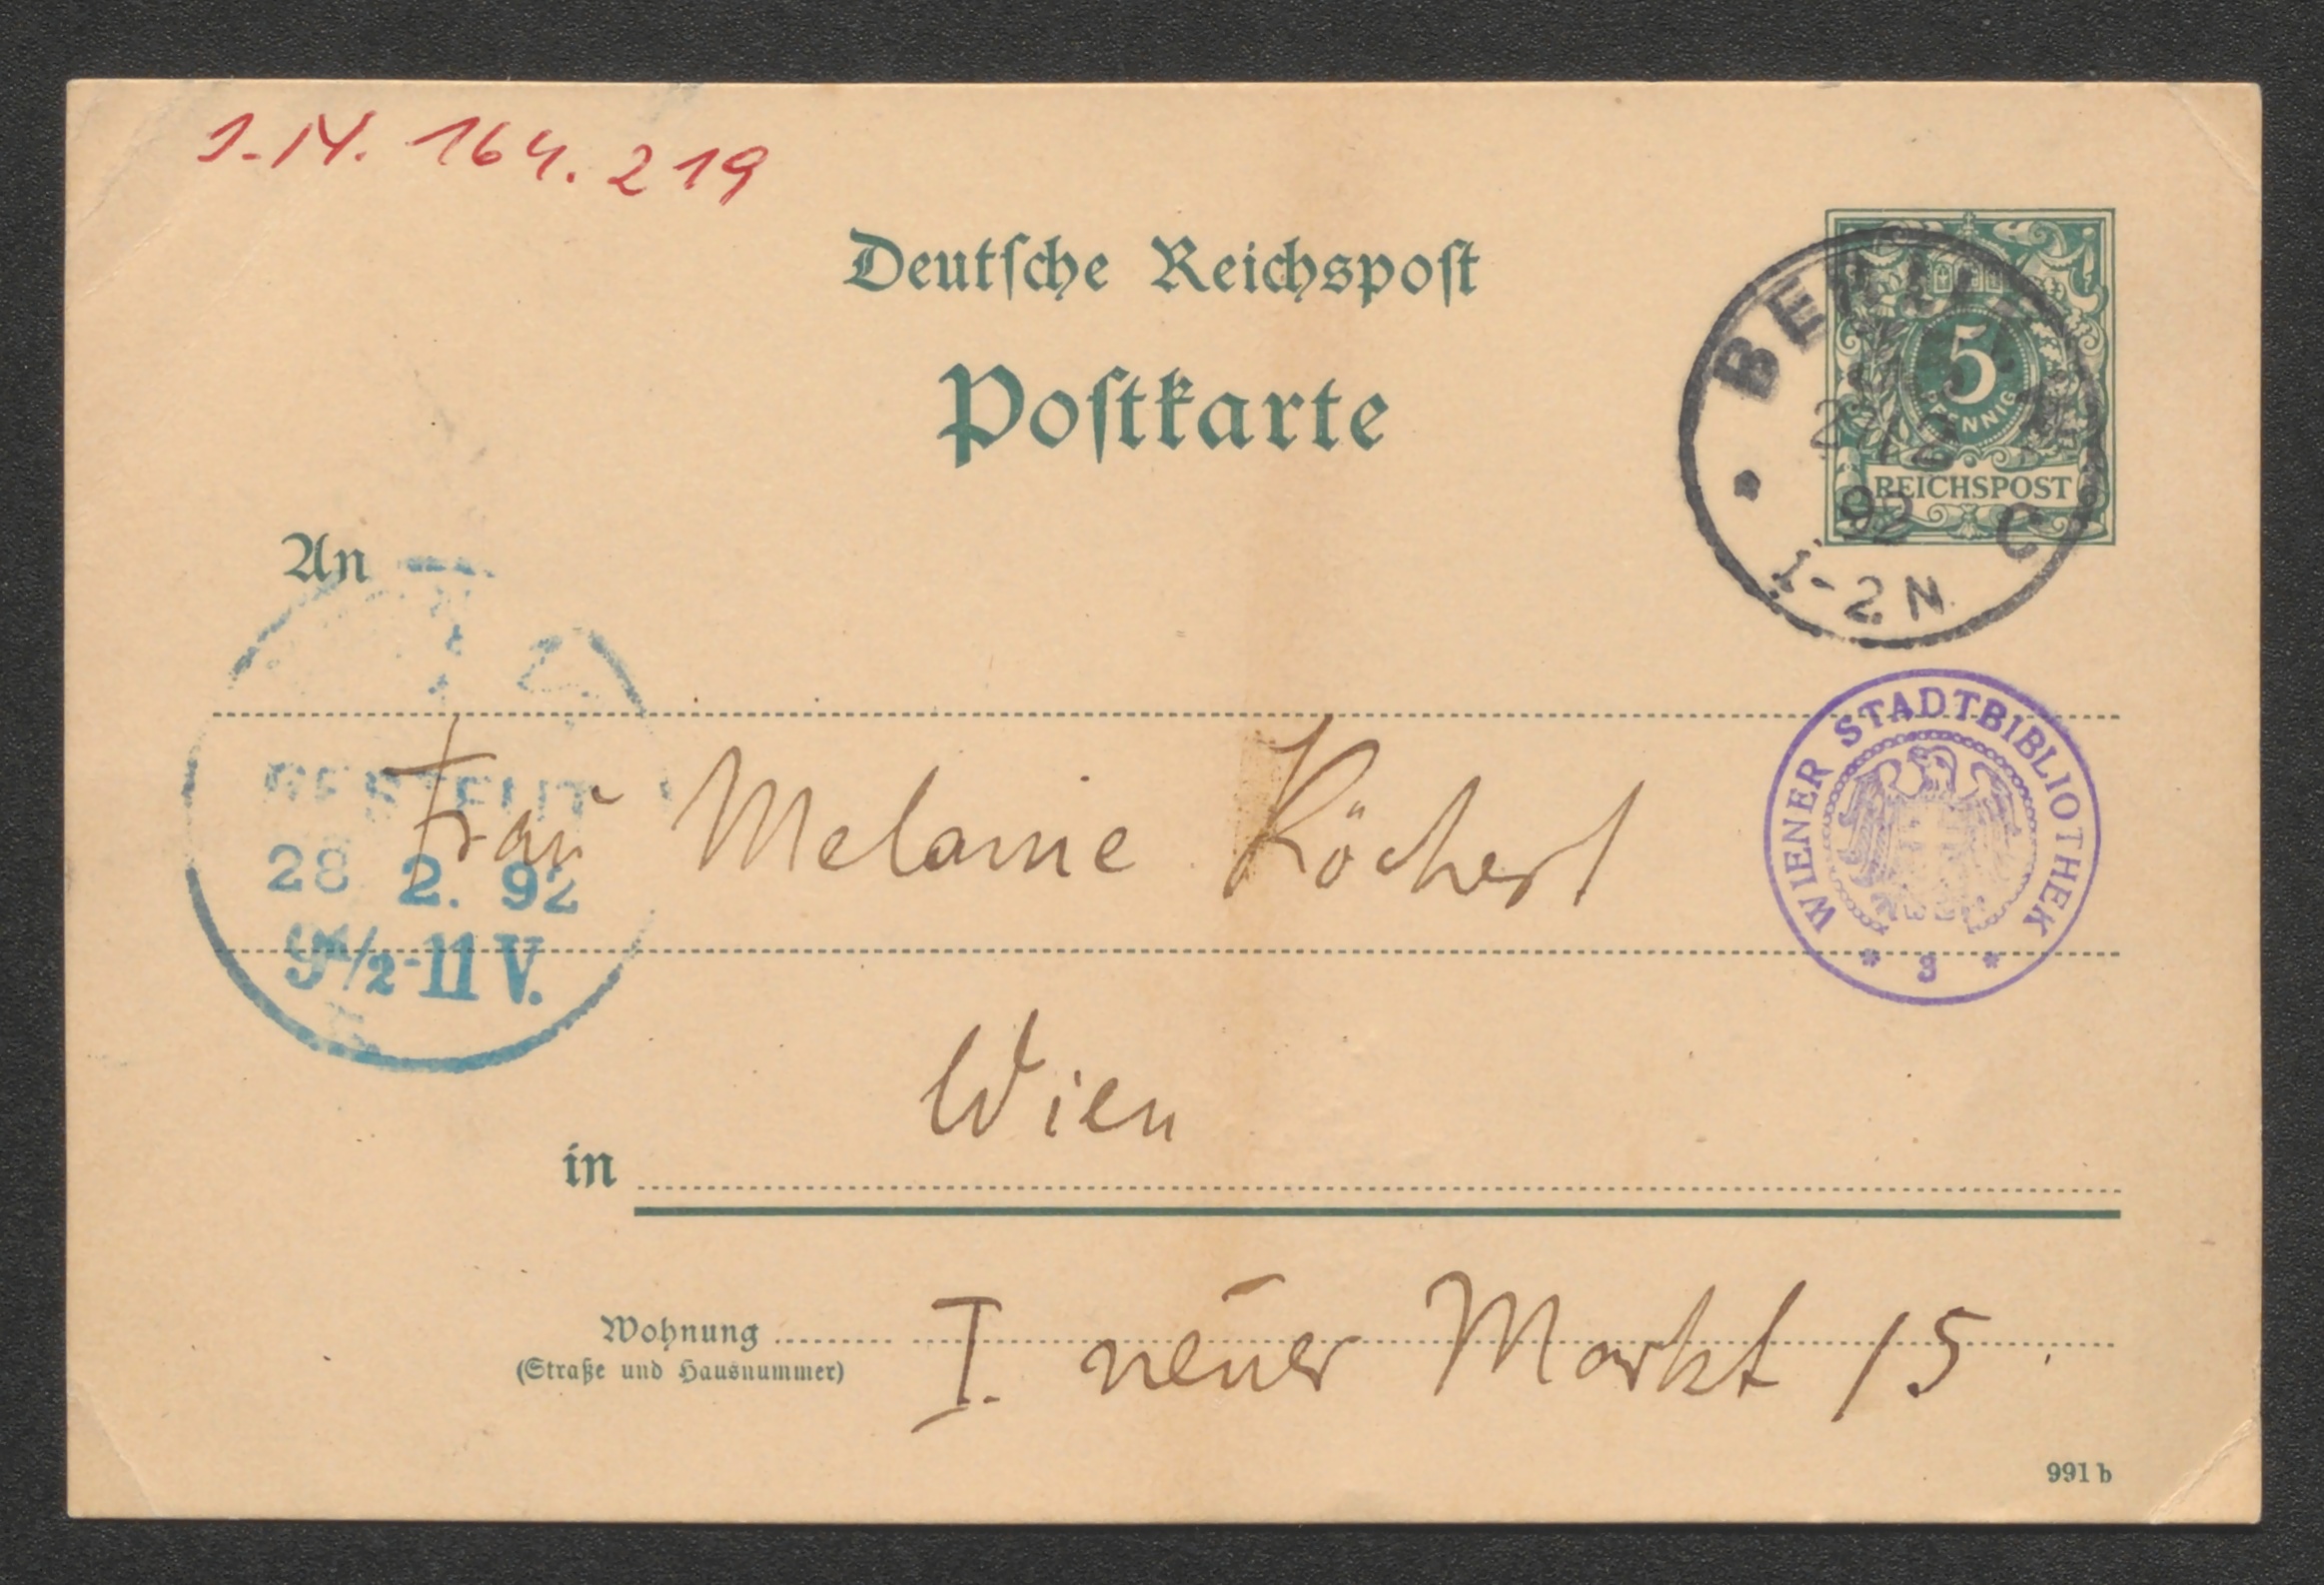 J.N. 164.219
Deutsche Reichspost
Postkarte
BERLIN
5
PFENNIG
REICHSPOST
92
C
1-2N
An
BESTELLT
28 2. 92
9 1/2-11 V.
Frau Melanie Köchert
WIENER STADTBIBLIOTHEK
* 3 *
in Wien
Wohnung I. neuer Markt 15
(Straße und Hausnummer)
991 b